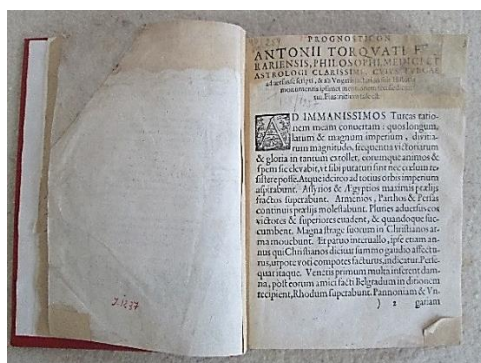 PROGNOSTICON
ANTONII TORQVATI
RARIENSIS, PHILOSOPHI, MEDICI ET
ASTROLOGI CLARISSIMI,
AD IMMANISSIMOS Turcas ratio-
nem meam conuertam: quos longum,
latum & magnum imperium, diuitia-
rum magnitudo, frequentia victoriarum
& gloria in tantum extollet, eorumque animos &
spem sic eleuabit, vt sibi putaturi sint nec cœlum re-
sistere posse. Atque idcirco ad totius orbis imperium
aspirabunt. Assyrios & Ægyptios maximis prælijs
fractos superabunt. Armenios, Parthos & Persas
continuis prælijs molestabunt. Plures aduersus eos
victores & superiores euadent, & quandoque suc-
cumbent. Magna strage suorum in Christianos ar-
ma mouebunt. Et paruo interuallo, ipse etiam an-
nus qui Christianos dicitur summo gaudio affectu-
rus, vtpote voti compotes facturus, indicatur. Perse-
quar itaque. Venetis primum multa inferent dam-
na, post eorum amici facti Belgradum in ditionem
recipient, Rhodum superabunt. Pannoniam & Vn-
) 2 gariam